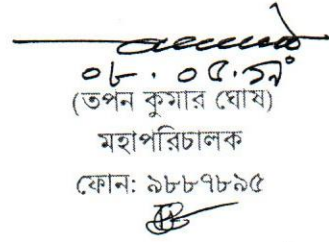 ০৮.০৫.১৯
(তপন কুমার ঘোষ)
মহাপরিচালক
ফোন: ৯৮৮৭৮৯৫